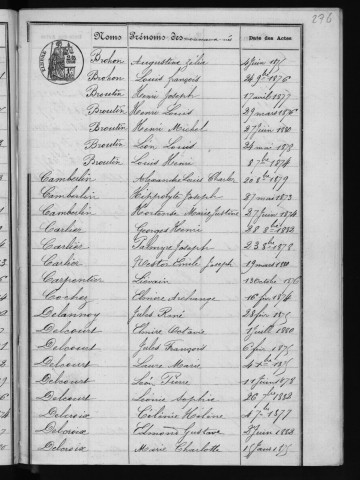 276
Noms Prénoms des Date des Actes
Brohon Augustine Julia 4 juin 1875
Brohon Louis François 24 9bre 1876
Broutin Henri Joseph 17 avril 1877
Broutin Louis 29 mars 1876
Broutin Henri Michel 27 juin 1880
Broutin Léon Louis 24 mai 1873
Broutin Louis Henri 8 7bre 1874
Camberlin Alexandre Louis Charles 20 8bre 1879
Camberlin Hippolyte Joseph 27 mars 1873
Camberlin Hortense Marie Justine 27 juin 1874
Carlier Georges Henri 28 8bre 1882
Carlier Palmyre Joseph 23 8bre 1878
Carlier Nestor Emile Joseph 19 mars 1880
Carpentier 13 octobre 1876
Cochez Elmire Archange 16 fer 1874
Delannoy Jules René 28 fer 1875
Delcourt Elmire Octavie 1 juillet 1880
Delcourt Jules François 6 fer 1875
Delcourt Laure Marie 4 1875
Delcourt Léon Pierre 11 juin 1878
Delcourt Léonie Sophie 20 7bre 1882
Delcroix Célinie Hélène 4 7bre 1877
Delcroix Edmond Gustave 2 juin 1882
Delcroix Marie Charlotte 15 janv 1875